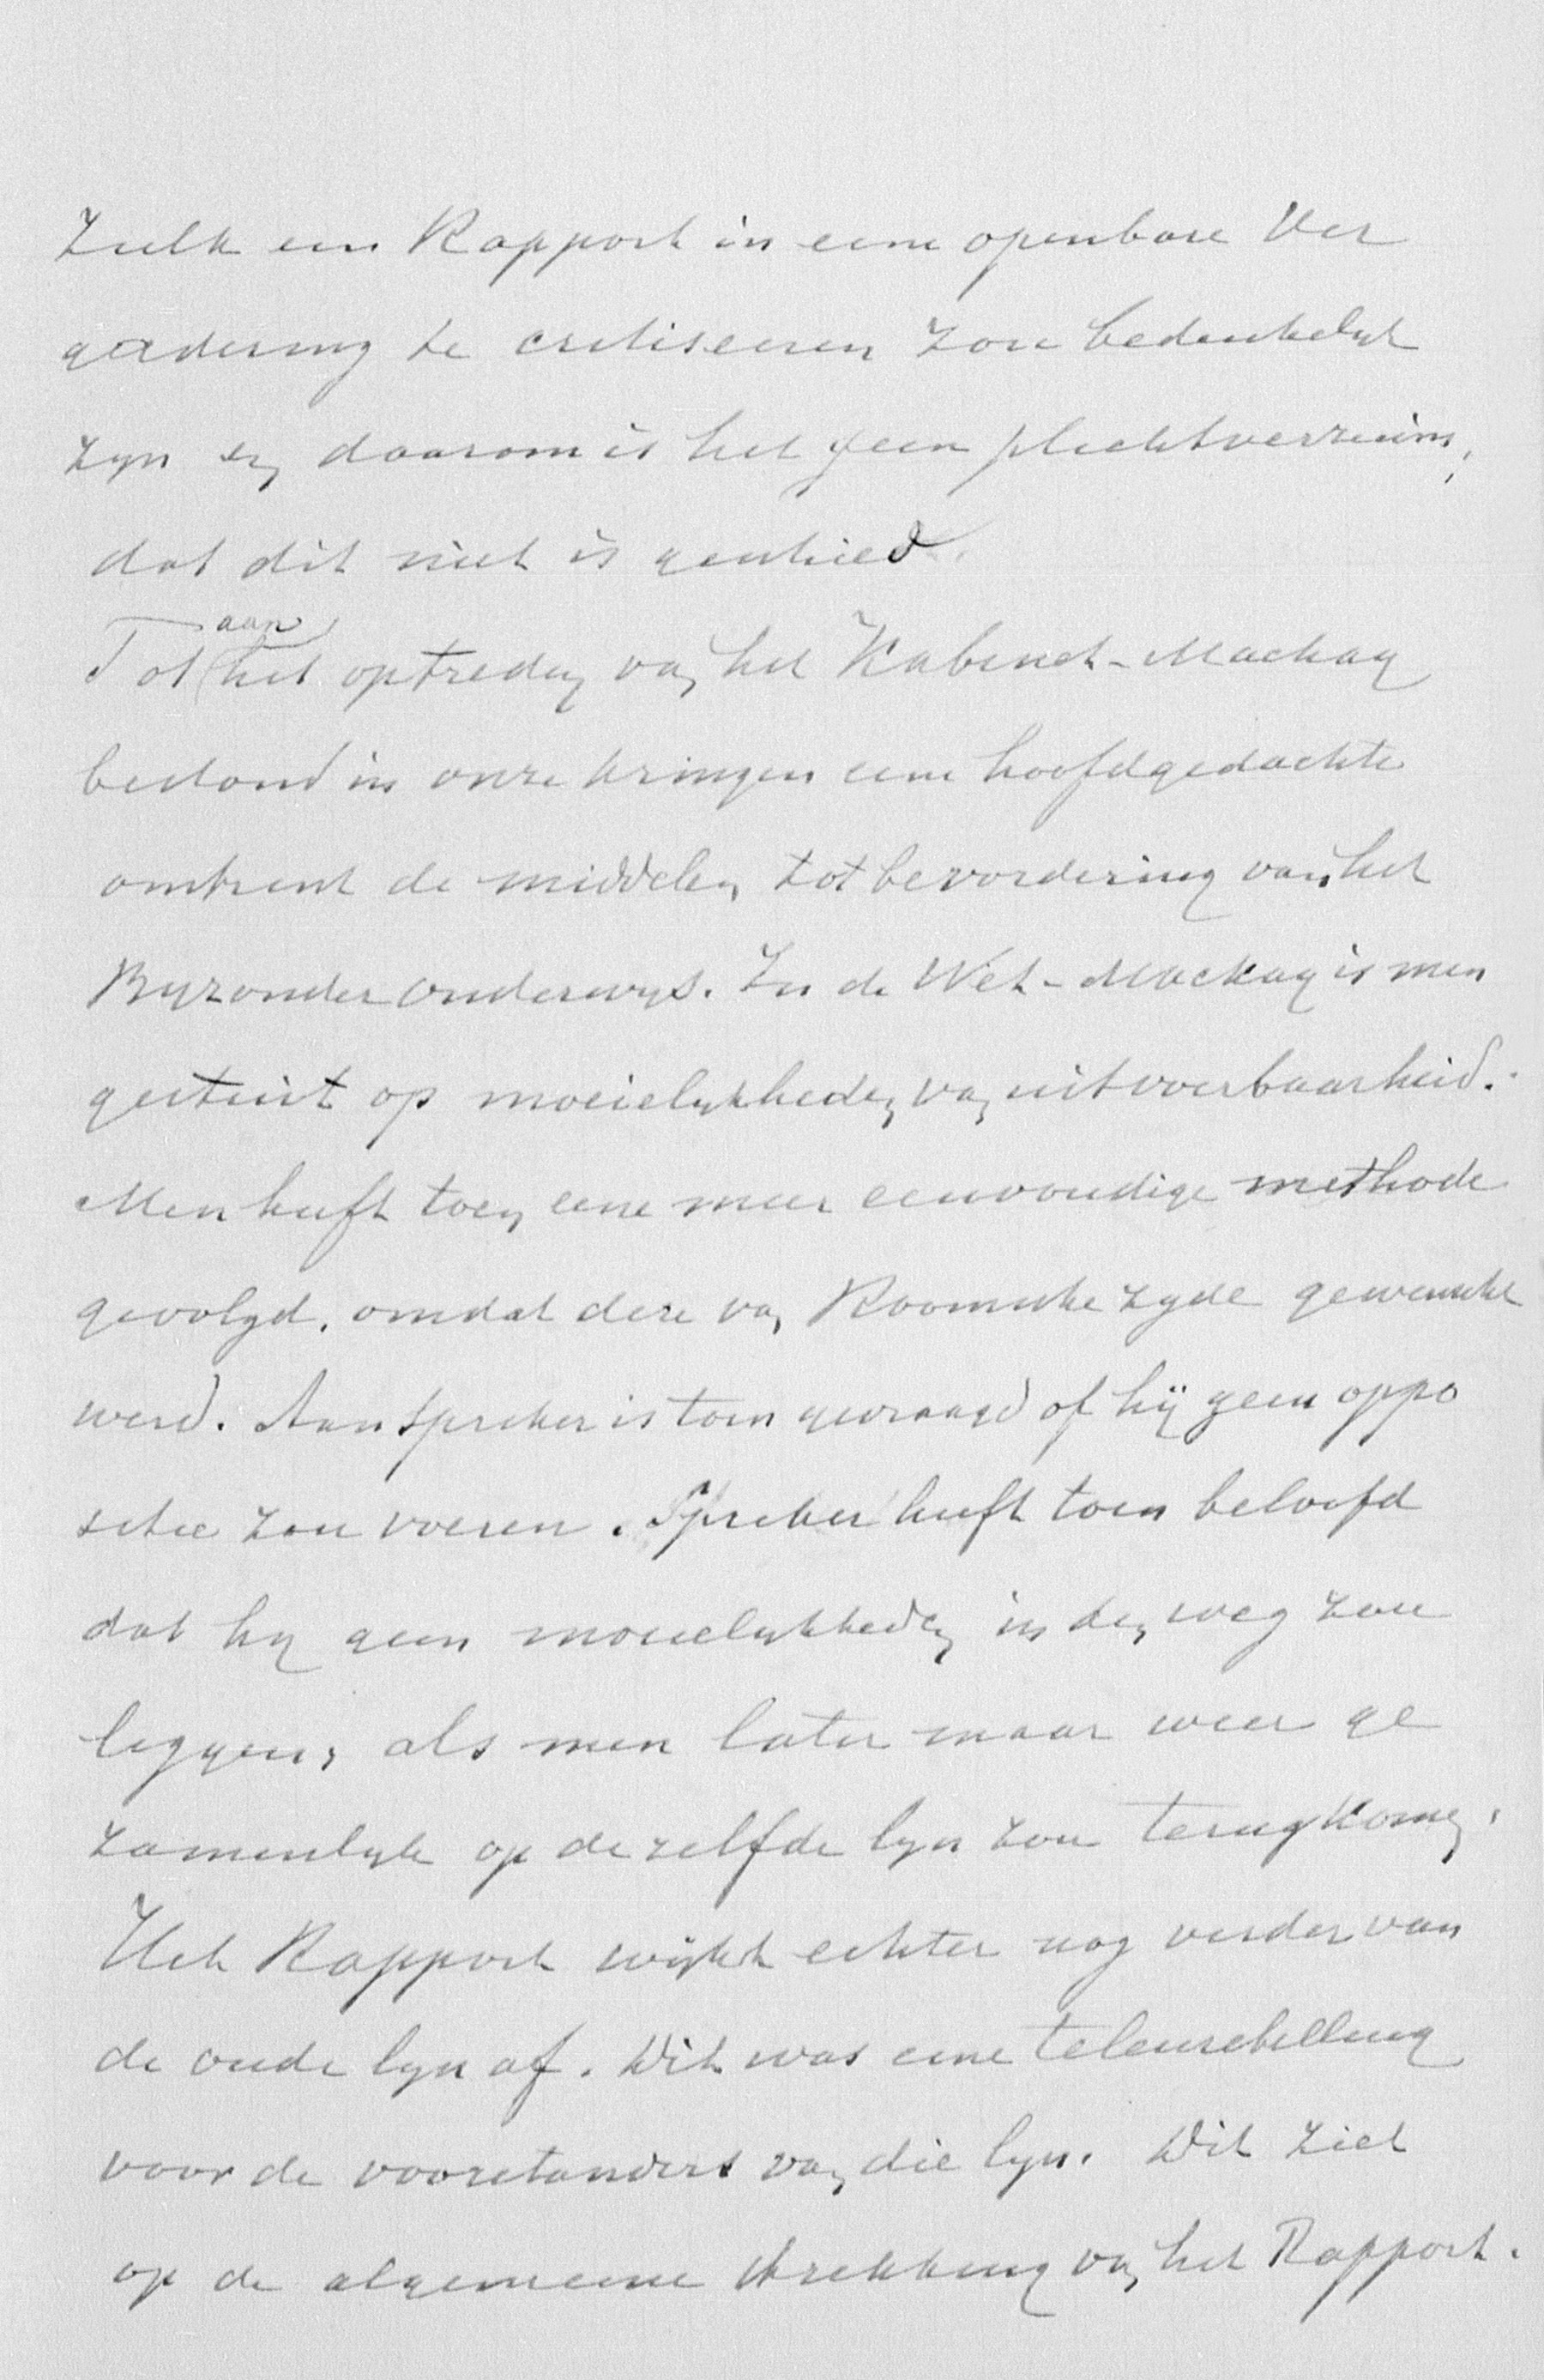 Zulk een Rapport in eene openbare Ver
gadering te critiseeren zou bedenkelyk
zyn en daarom is het geen plichtverzuim,
dat dit niet is geschied.
Tot aan het optreden van het Kabinet-Mackay
bestond in onze kringen eene hoofdgedachte
omtrent de middelen tot bevordering van het
Byzonder onderwys. In de Wet-Mackay is men
gestuit op moeielykheden van uitvoerbaarheid.
Men heeft toen eene meer eenvoudige methode
gevolgd, omdat deze van Roomsche zyde gewenscht
werd. Aan Spreker is toen gevraagd of hij geen oppo
sitie zou voeren. Spreker heeft toen beloofd
dat hy geen moeielykheden in den weg zou
leggen, als men later maar weer ge
zamenlyk op dezelfde lyn zou terugkomen.
Het Rapport wijkt echter nog verder van
de oude lyn af. Dit was eene teleurstelling
voor de voorstanders van die lyn. Dit ziet
op de algemeene strekking van het Rapport.